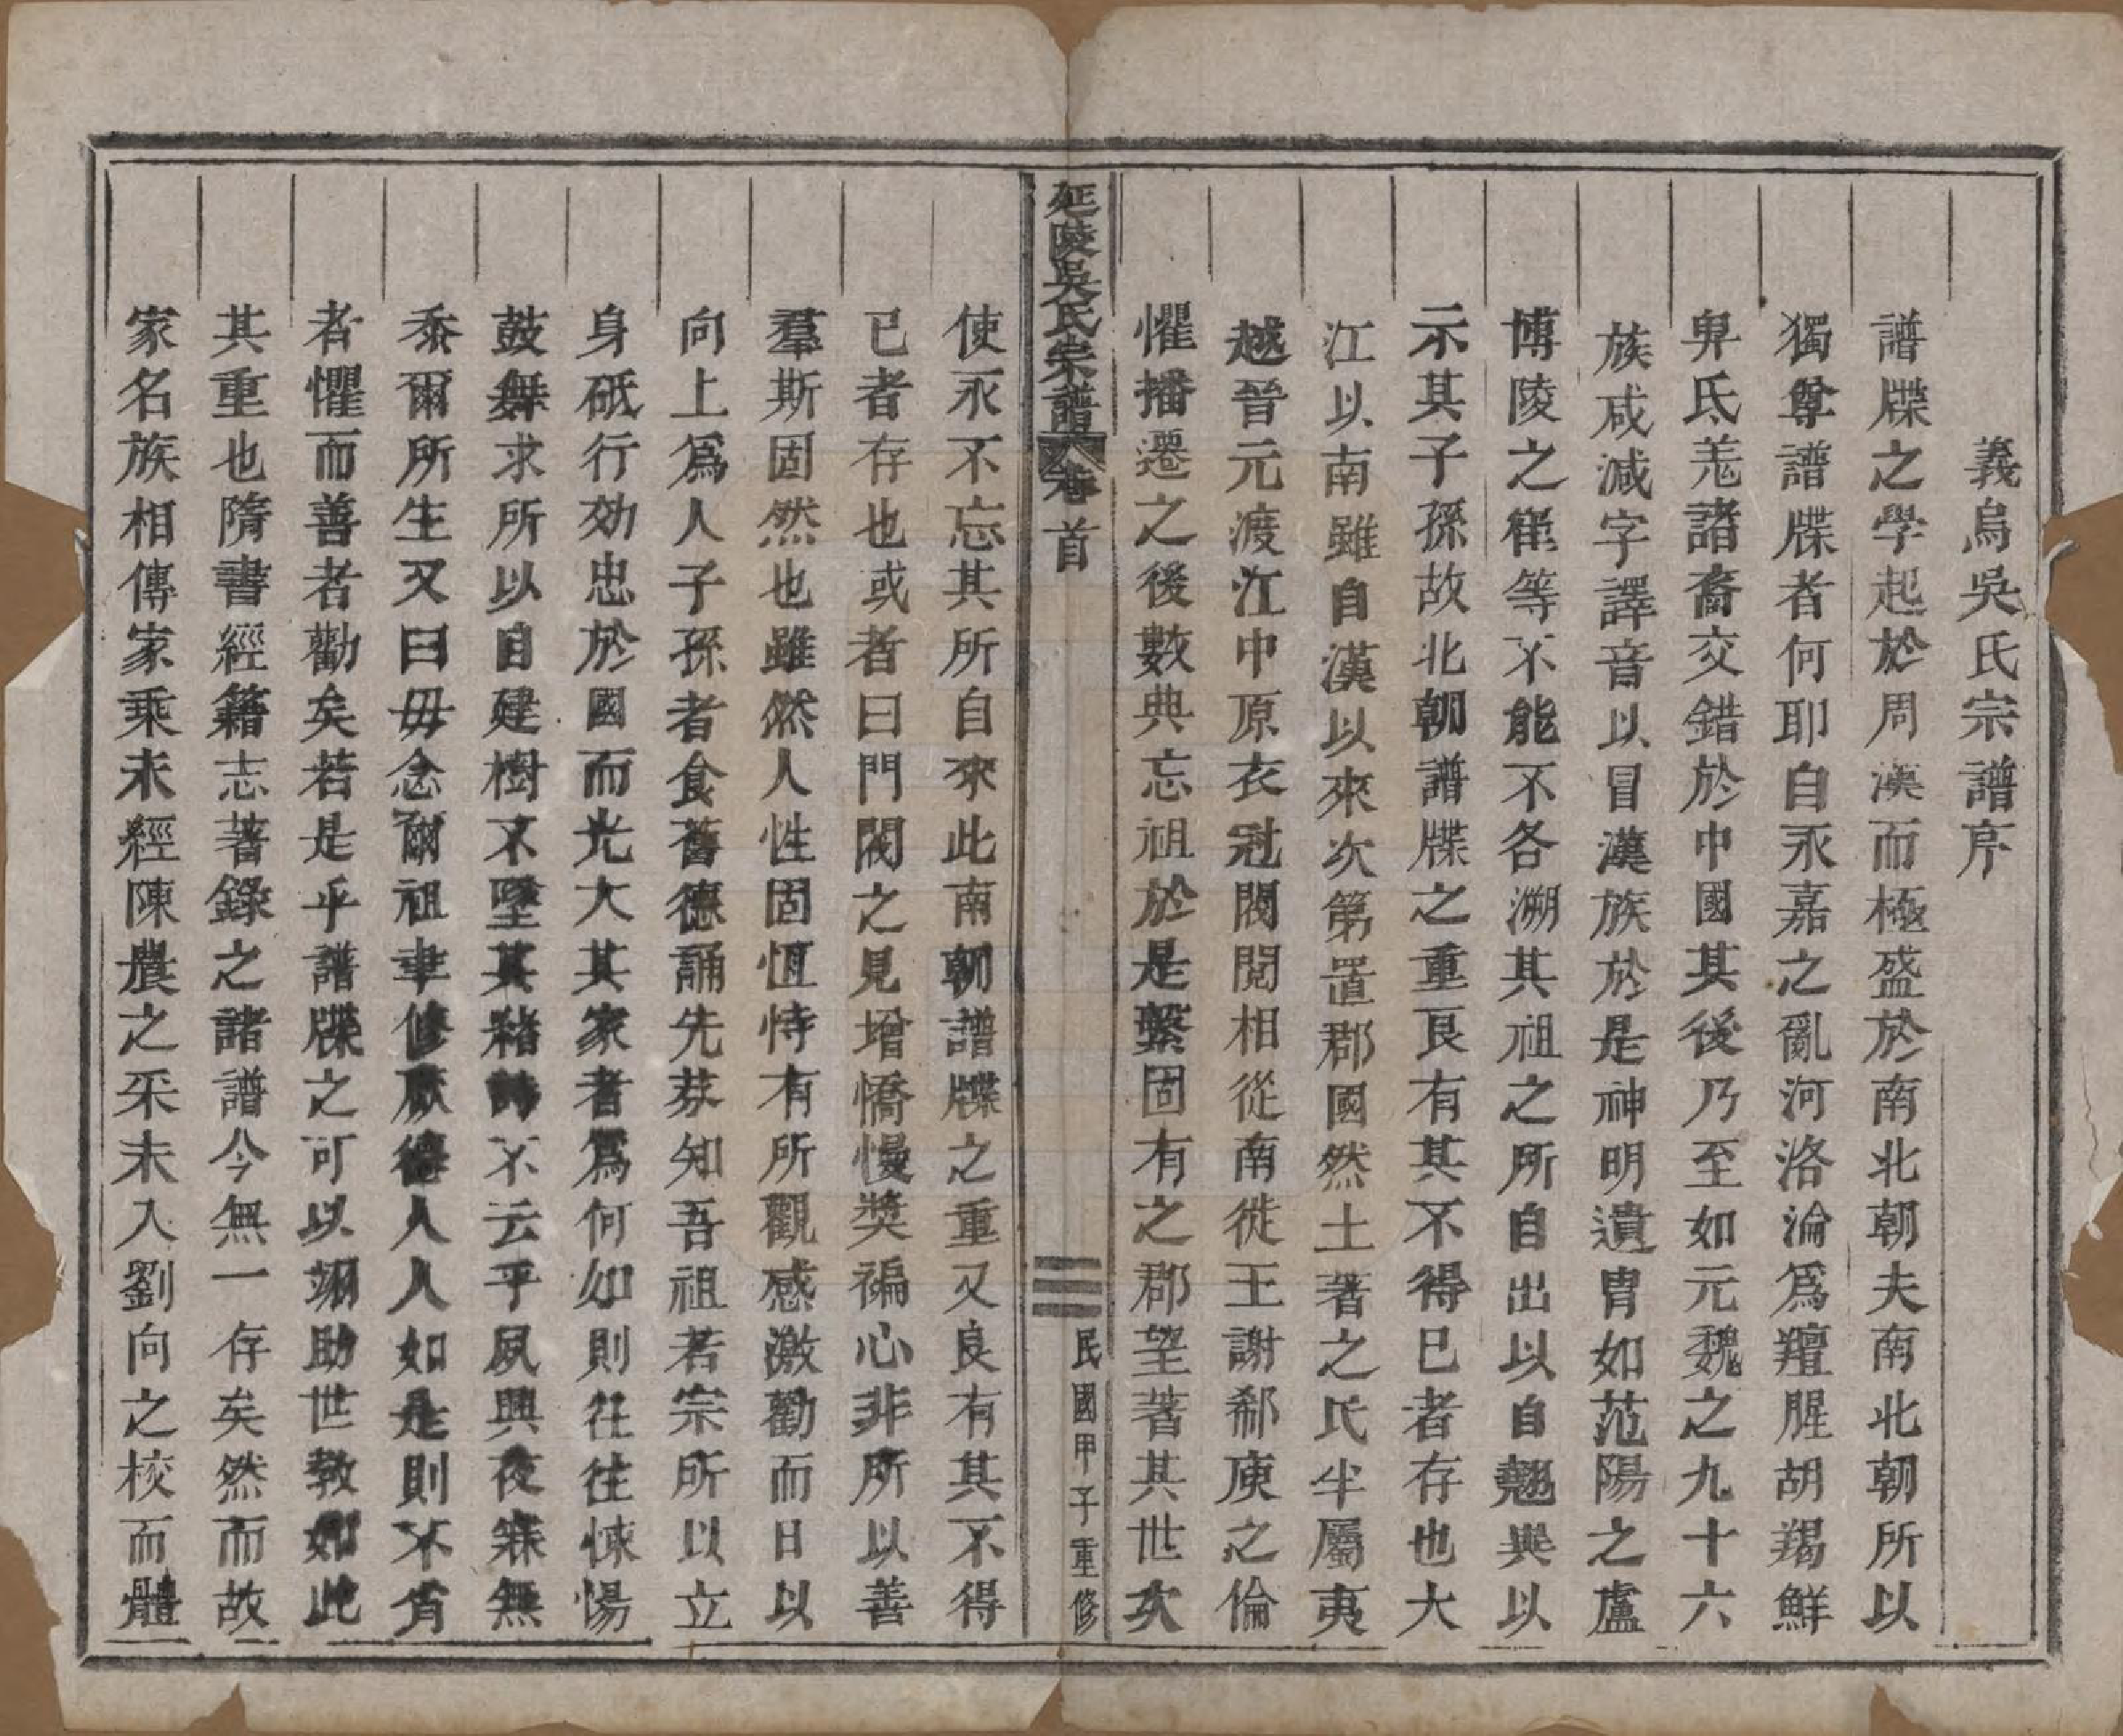 義烏吳氏宗譜序
譜牒之學起於周漢而極盛於南北朝夫南北朝所以
獨尊譜牒者何耶自永嘉之亂河洛淪爲羶腥胡羯鮮
卑氐羌諸裔交錯於中國其後乃至如元魏之九十六
族咸減字譯音以冒漢族於是神明遺胄如范陽之盧
博陵之崔等不能不各溯其祖之所自出以自翹與以
示其子孫故北朝譜牒之重良有其不得已者存也大
江以南雖自漢以來次第置郡國然土著之氏半屬夷
越晉元渡江中原衣冠閥閱相從南徙王謝郗庾之倫
懼播遷之後數典忘祖於是繫固有之郡望著其世次
延陵吳氏宗譜 卷首 三 民國甲子重修
使永不忘其所自來此南朝譜牒之重又良有其不得
已者存也或者曰門閥之見增憍慢獎褊心非所以善
羣斯固然也雖然人性固恆恃有所觀感激勸而日以
向上爲人子孫者食舊德誦先芬知吾祖若宗所以立
身砥行効忠於國而光大其家者爲何如則往往悚惕
鼓舞求所以自建樹不墜其緒詩不云乎夙興夜寐無
忝爾所生又曰毋念爾祖聿修厥德人人如是則不肖
者懼而善者勸矣若是乎譜牒之可以翊助世教如此
其重也隋書經籍志著錄之諸譜今無一存矣然而故
家名族相傳家乘未經陳農之采未入劉向之校而體